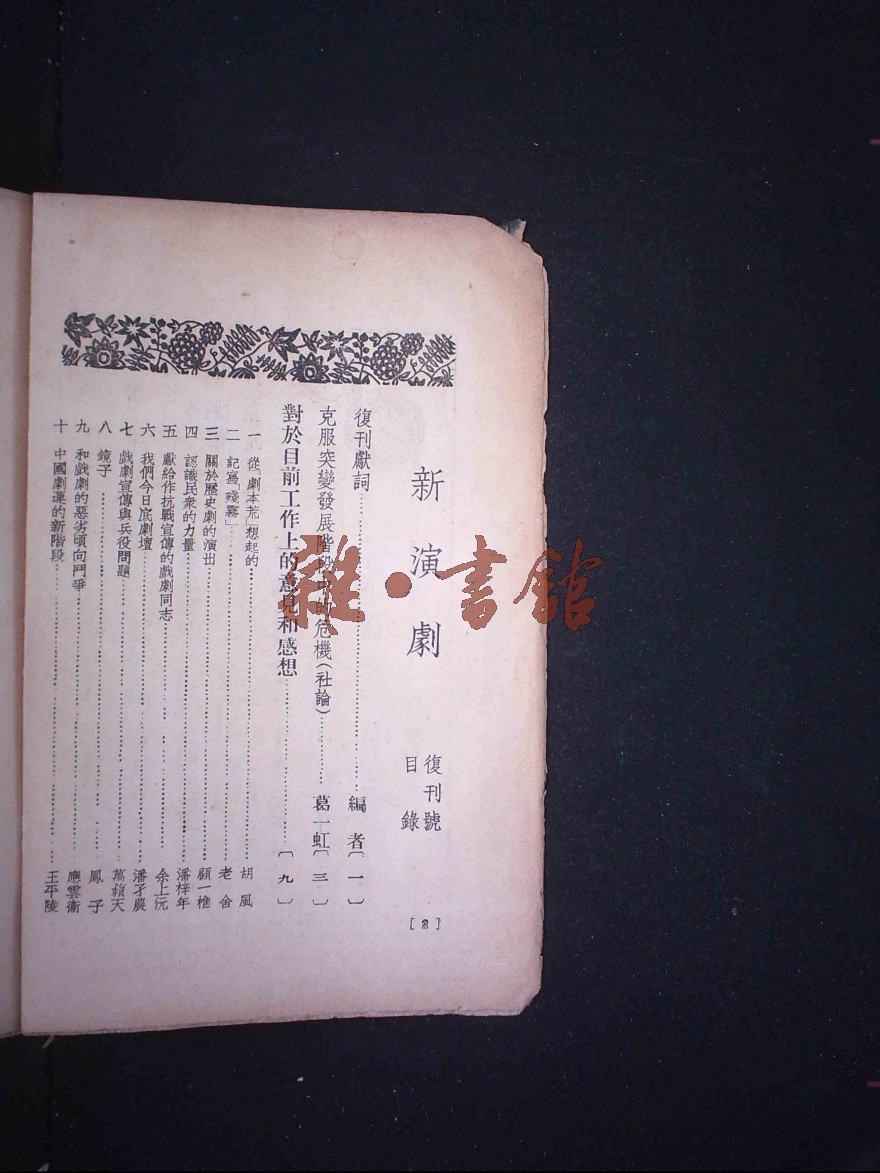 新演劇
復刊號
目錄
復刊獻詞 編者〔一〕
克服突變發展階段中的危機(社論) 葛一虹〔三〕
對於目前工作上的意見和感想 〔九〕
一 從「劇本荒」想起的 胡風
二 記寫「殘霧」 老舍
三 關於歷史劇的演出 顧一樵
四 認識民衆的力量 潘梓年
五 獻給作抗戰宣傳的戲劇同志 余上沅
六 我們今日底劇壇 潘孑農
七 戲劇宣傳與兵役問題 萬籟天
八 鏡子 鳳子
九 和戲劇的惡劣頃向鬥爭 應雲衞
十 中國劇運的新階段 王平陵
雜·書館